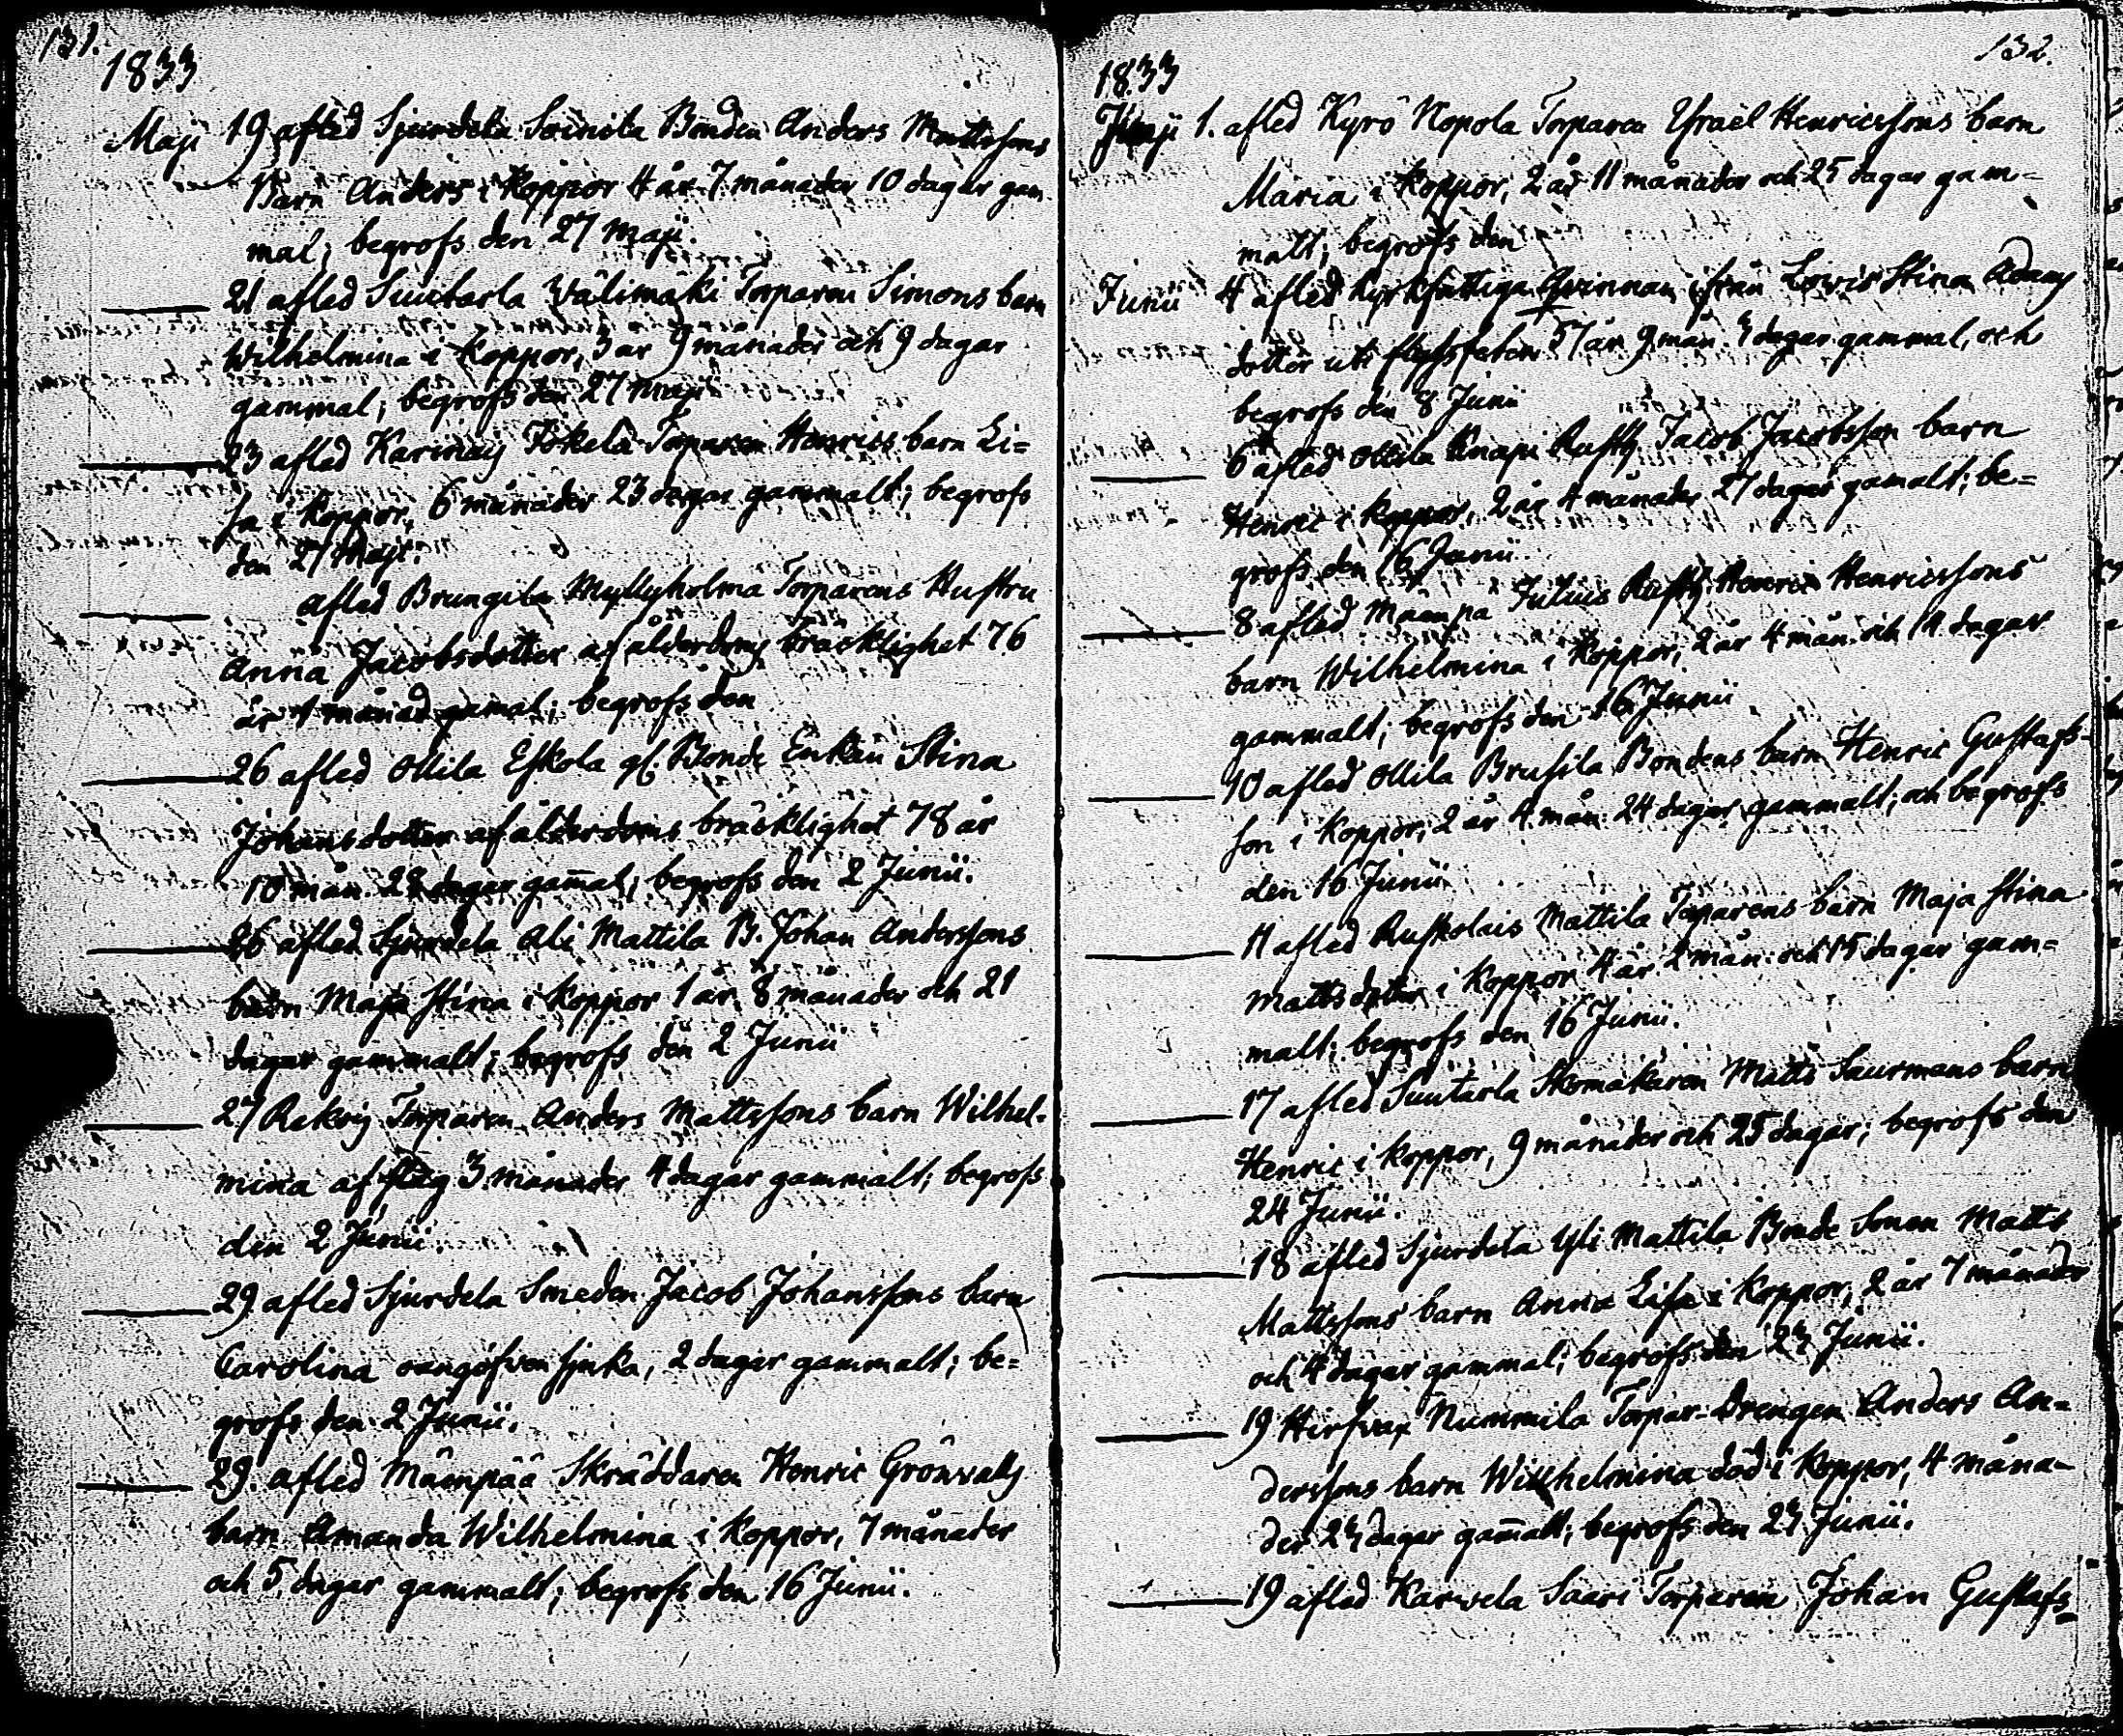 131.
1833
Maji 19 afled Sjurdela Soinila Bonden Anders Mattssons
Barn Anders i Koppor 4 år 7 månader 10 dagar gam
mal; begrofs den 27 Maji.
21 afled Suutarla Välimäki Torparen Simons barn
Wilhelmina i Koppor, 3 år 9 månader och 9 dagar
gammal; begrofs den 27 Maji
23 afled Karinais Torparen Henrics barn Li=
sa i Koppor, 6 månader 23 dagar gammalt; begrofs
den 27 Maji.
afled Brungila Myllyholma Torparens Hustru
Anna Jacobsdotter af ålderdoms bräcklighet 76
år 1 månad gamal; begrofs den
26 afled Ollila Eskola gl. Bonde Enkan Stina
Johansdotter af ålderdoms bräcklighet 78 år
10 mån. dagar gamal; begrofs den 2 Junii.
26 afled Sjurdela Ali Mattila B. Johan Anderssons
barn Maja Stina i Koppor 1 år 8 månader och 21
dagar gammalt; begrofs den 2 Junii
27 Torparen Anders Mattssons barn Wilhel-
mina af slag 3 månader 4 dagar gammalt; begrofs
den 2 Junii.
29 afled Sjurdela Smeden Jacob Johanssons barn
Carolina oangifven sjuka, 2 dagar gammalt; be=
grofs den 2 Junii.
29. afled Mämpää Skräddaren Henric Grönvalls
barn Amanda Wilhelmina i Koppor, 7 månader
och 5 dagar gammalt; begrofs den 16 Junii.
132.
1833
1. afled Kyrö Nopola Torparen Israel Henricssons barn
Maria i Koppor, 2 år 11 månader och 25 dagar gam=
malt; begrofs den
Junii 4 afled Kyrkfattiga Qvinnan ifrån Lovis Stina Adams
dotter uti 57 år 9 mån. 4 dagar gammal, och
begrofs den 8 Junii
6 afled Ollila Knapi Rusth. Jacob Jacobsson barn
Henric i Koppor, 2 år 4 månader 27 dagar gamalt; be=
grofs den 16 Junii
8 afled Mämpä Julius Rusth. Henric Henricssons
barn Wilhelmina i Koppor, 2 år 4 mån. och 14 dagar
gammalt; begrofs den 16 Junii
10 afled Ollila Brusila Bondens barn Henric Gustafs-
son i Koppor, 2 år 4 mån. 24 dagar gammalt; och begrofs
den 16 Junii
11 afled Ruskolais Mattila Torparens barn Maja Stina
Mattsdotter i Koppor 4 år 2 mån. och 15 dagar gam=
malt; begrofs den 16 Junii.
17 afled Suutarla Skomakaren Matts Saurmans barn
Henric i Koppor, 9 månader och 25 dagar; begrofs den
24 Junii.
18 afled Sjurdela Yli Mattila Bonde Sonen Matts
Mattssons barn Anna Lisa i Koppor, 2 år 7 månader
och 4 dagar gammal; begrofs den 24 Junii.
19 Hirsvax Nummila Torpar-Drengen Anders An=
derssons barn Wilhelmina död i Koppor, 4 måna-
der 24 dagar gamalt; begrofs den 24 Junii.
19 afled Karvela Saari Torparen Johan Gustafs=